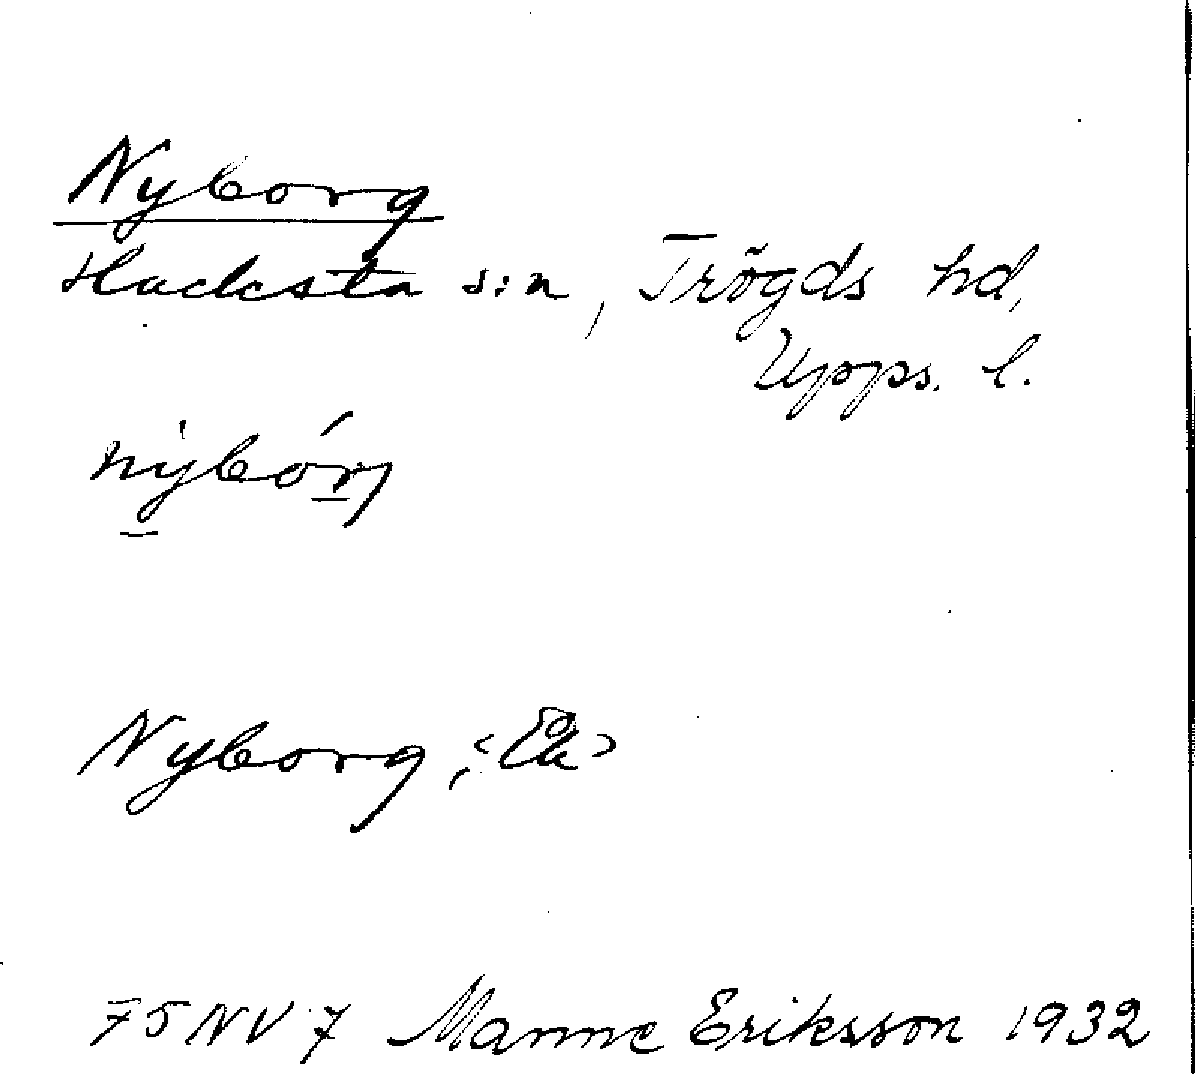 Nyborg
Hacksta s:n, Trögds hd,
Upps. l.
Nyborg, <Ek>
75 NV 7 Manne Eriksson 1932